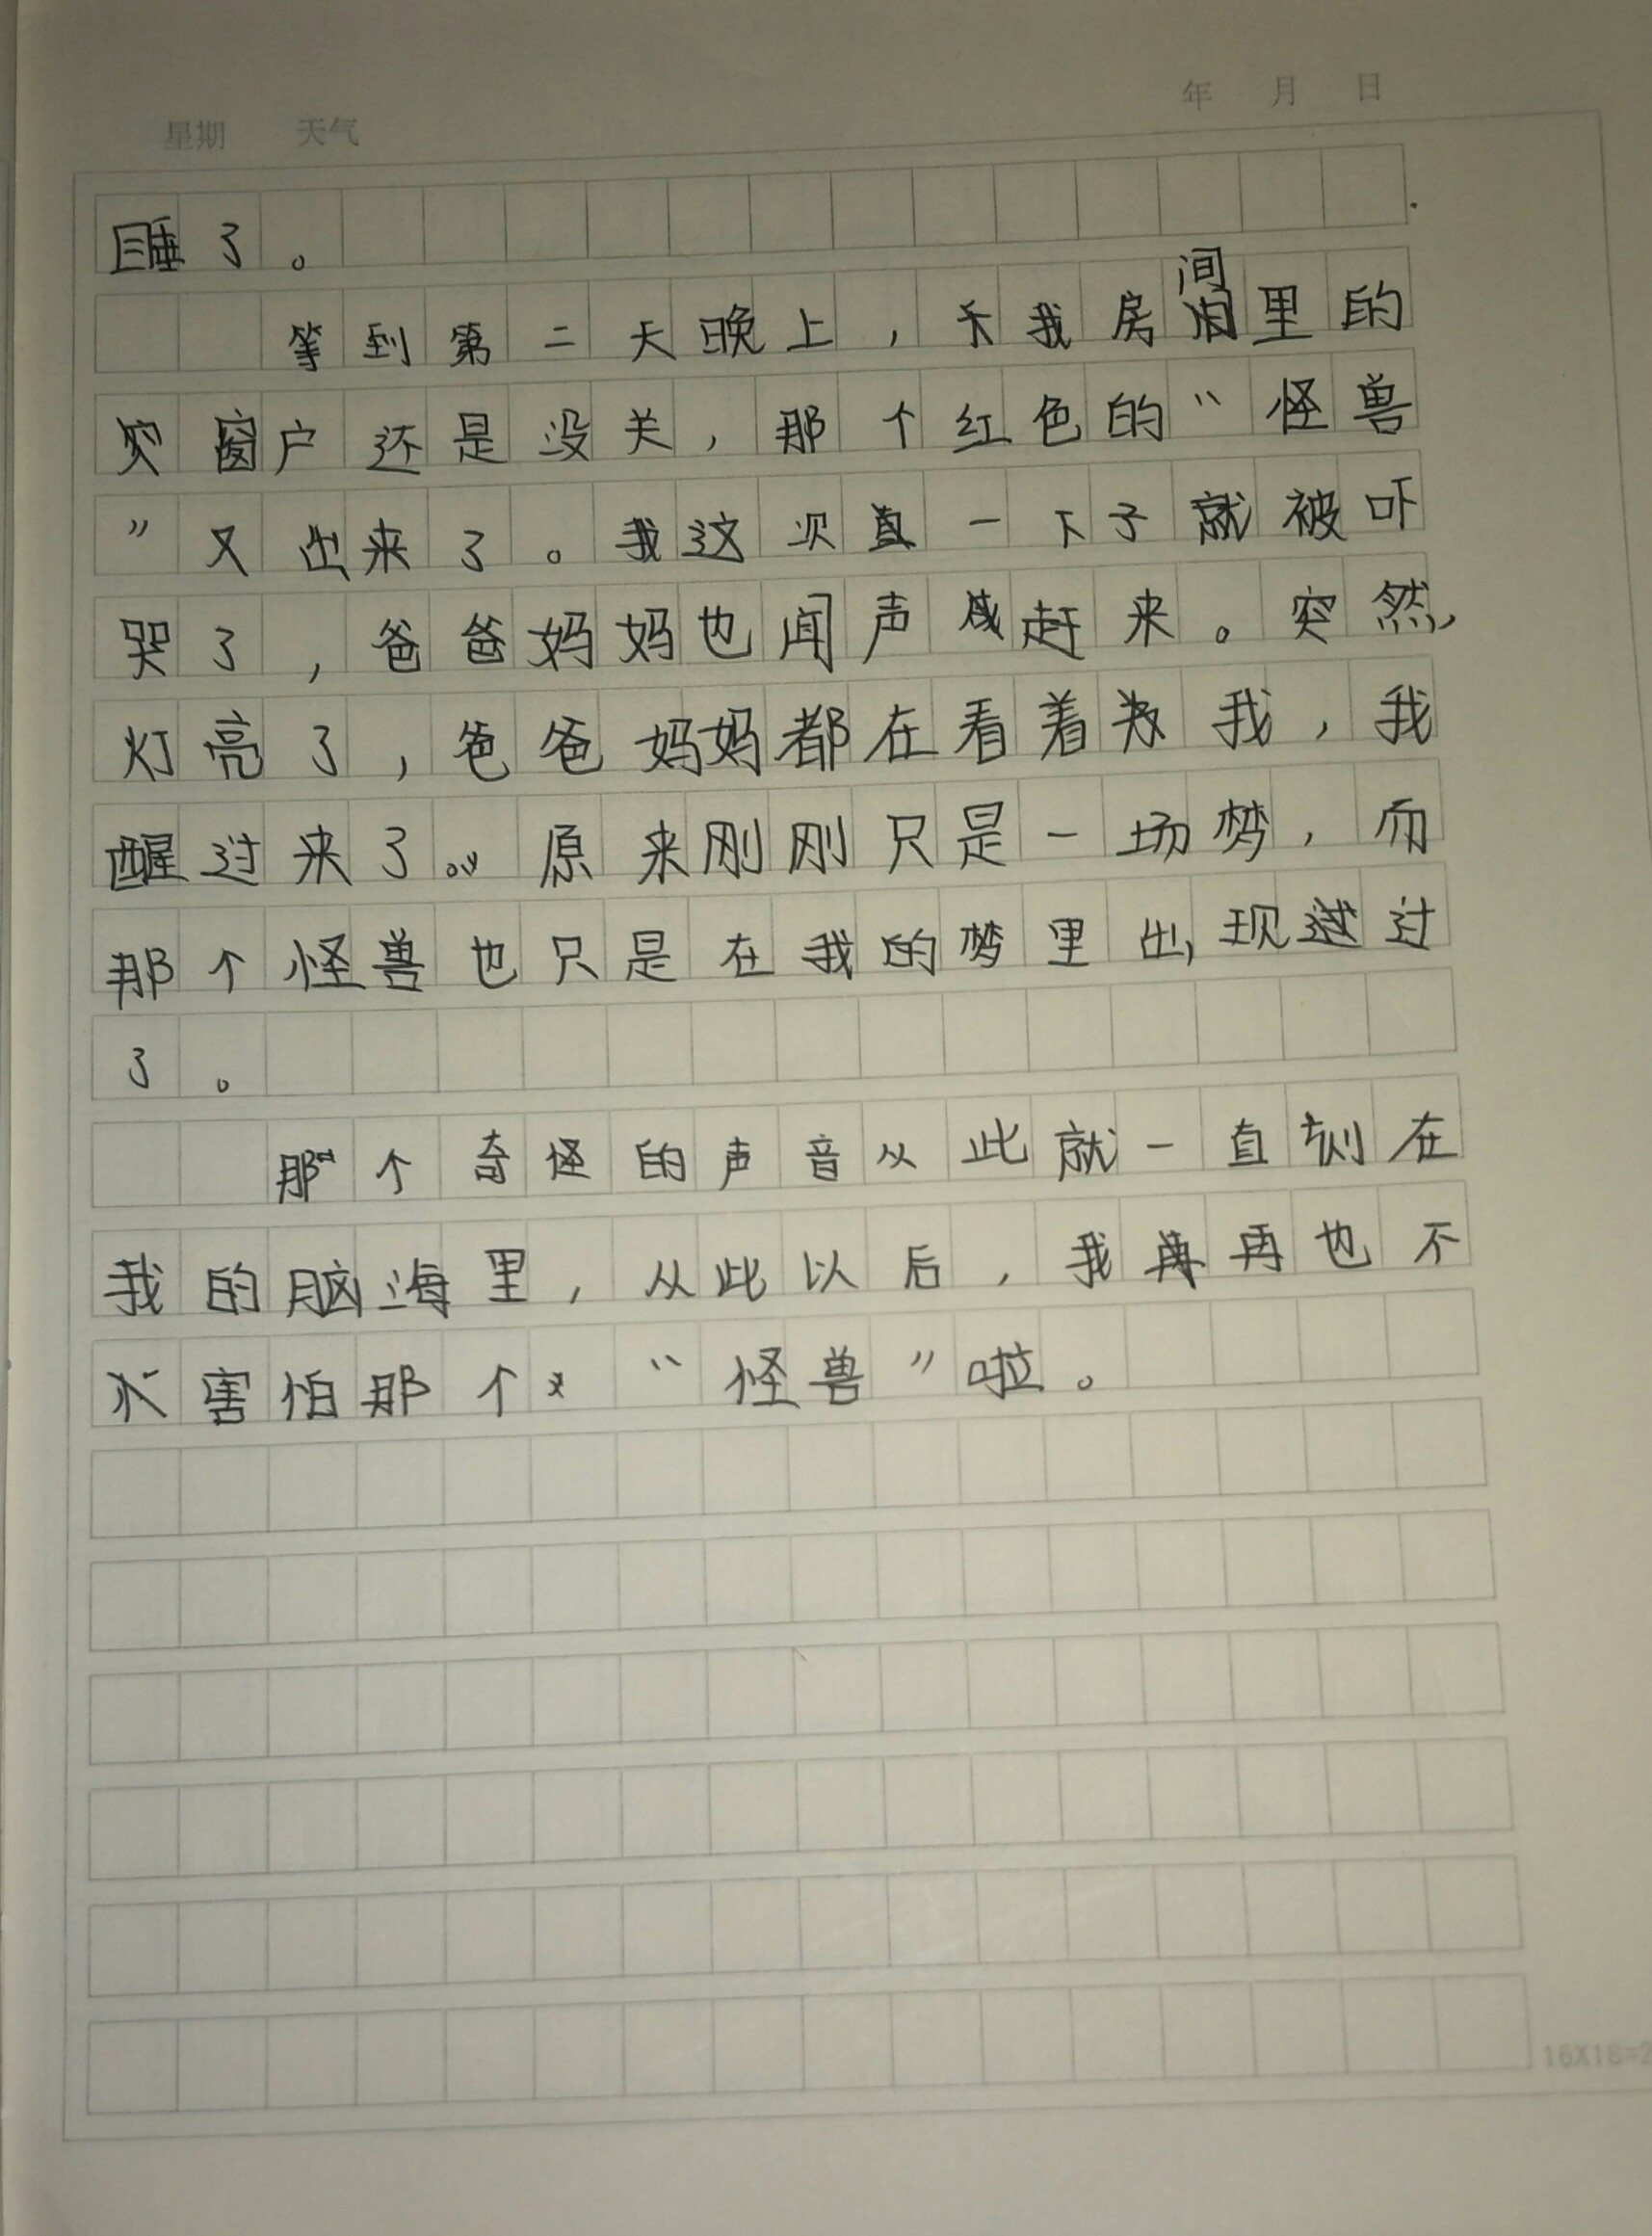 年 月 日
星期 天气
睡了。
等到第二天晚上，我房间里的
窗户还是没关，那个红色的“怪兽
”又出来了。我这次一下子就被吓
哭了，爸爸妈妈也闻声赶来。突然，
灯亮了，爸爸妈妈都在看着我，我
醒过来了。原来刚刚只是一场梦，而
那个怪兽也只是在我的梦里出现过
了。
那个奇怪的声音从此就一直刻在
我的脑海里，从此以后，我再也不
害怕那个“怪兽”啦。